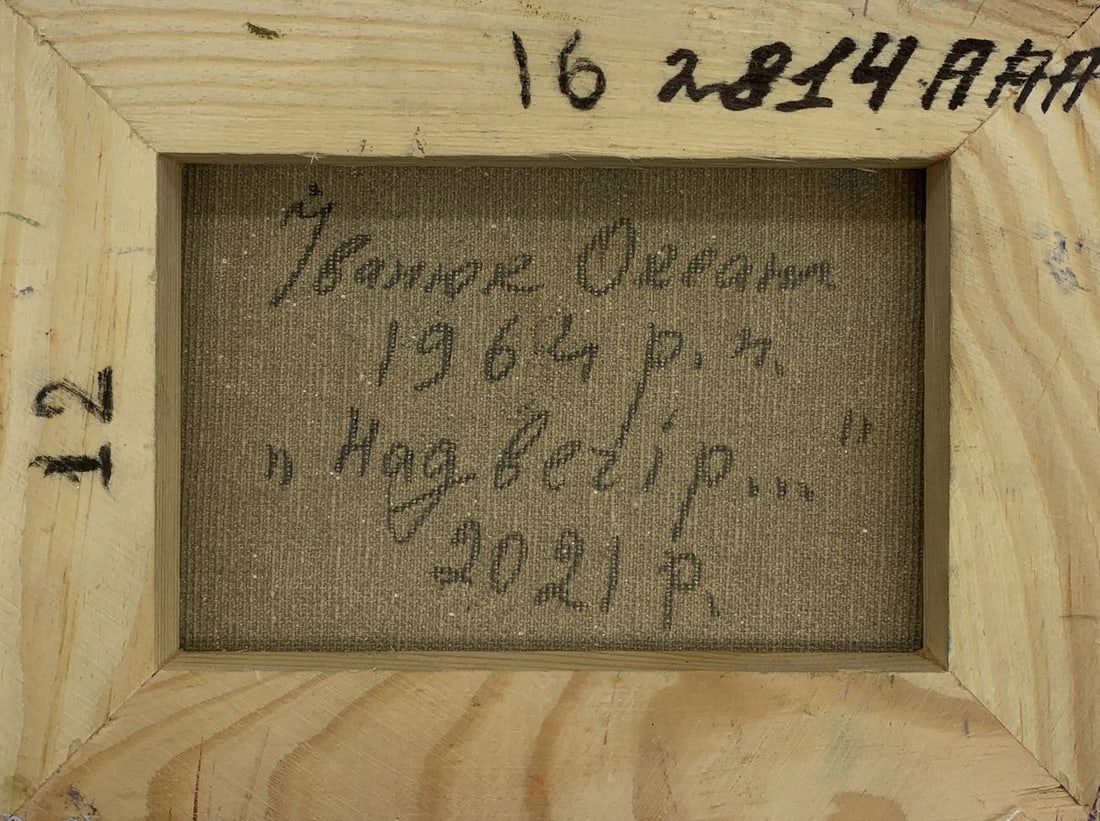 16 2814 AAA
Іванюк Оксана
1964 р. н.
„Надвечір..."
2021 р.
12